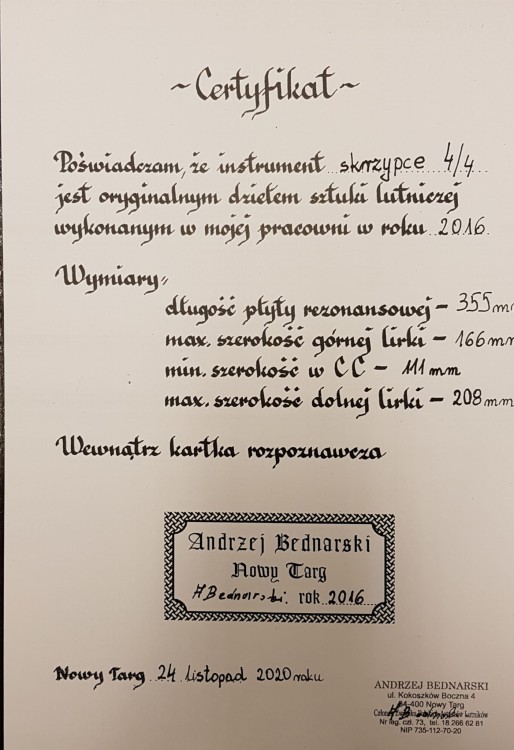 ~ Certyfikat ~
Poświadczam, że instrument skrzypce 4/4
jest oryginalnym dziełem sztuki lutniczej
wykonanym w mojej pracowni w roku 2016.
Wymiary:
długość płyty rezonansowej – 355 mm
max. szerokość górnej lirki – 166 mm
min. szerokość w CC – 111 mm
max. szerokość dolnej lirki – 208 mm
Wewnątrz kartka rozpoznawcza
Andrzej Bednarski
Nowy Targ
A Bednarski. rok 2016
Nowy Targ 24 listopad 2020 roku
ANDRZEJ BEDNARSKI
ul. Kokoszków Boczna 4
34-400 Nowy Targ
Lutników
Nr leg. czł. 73, tel. 18 266 62 81
NIP 735-112-70-20